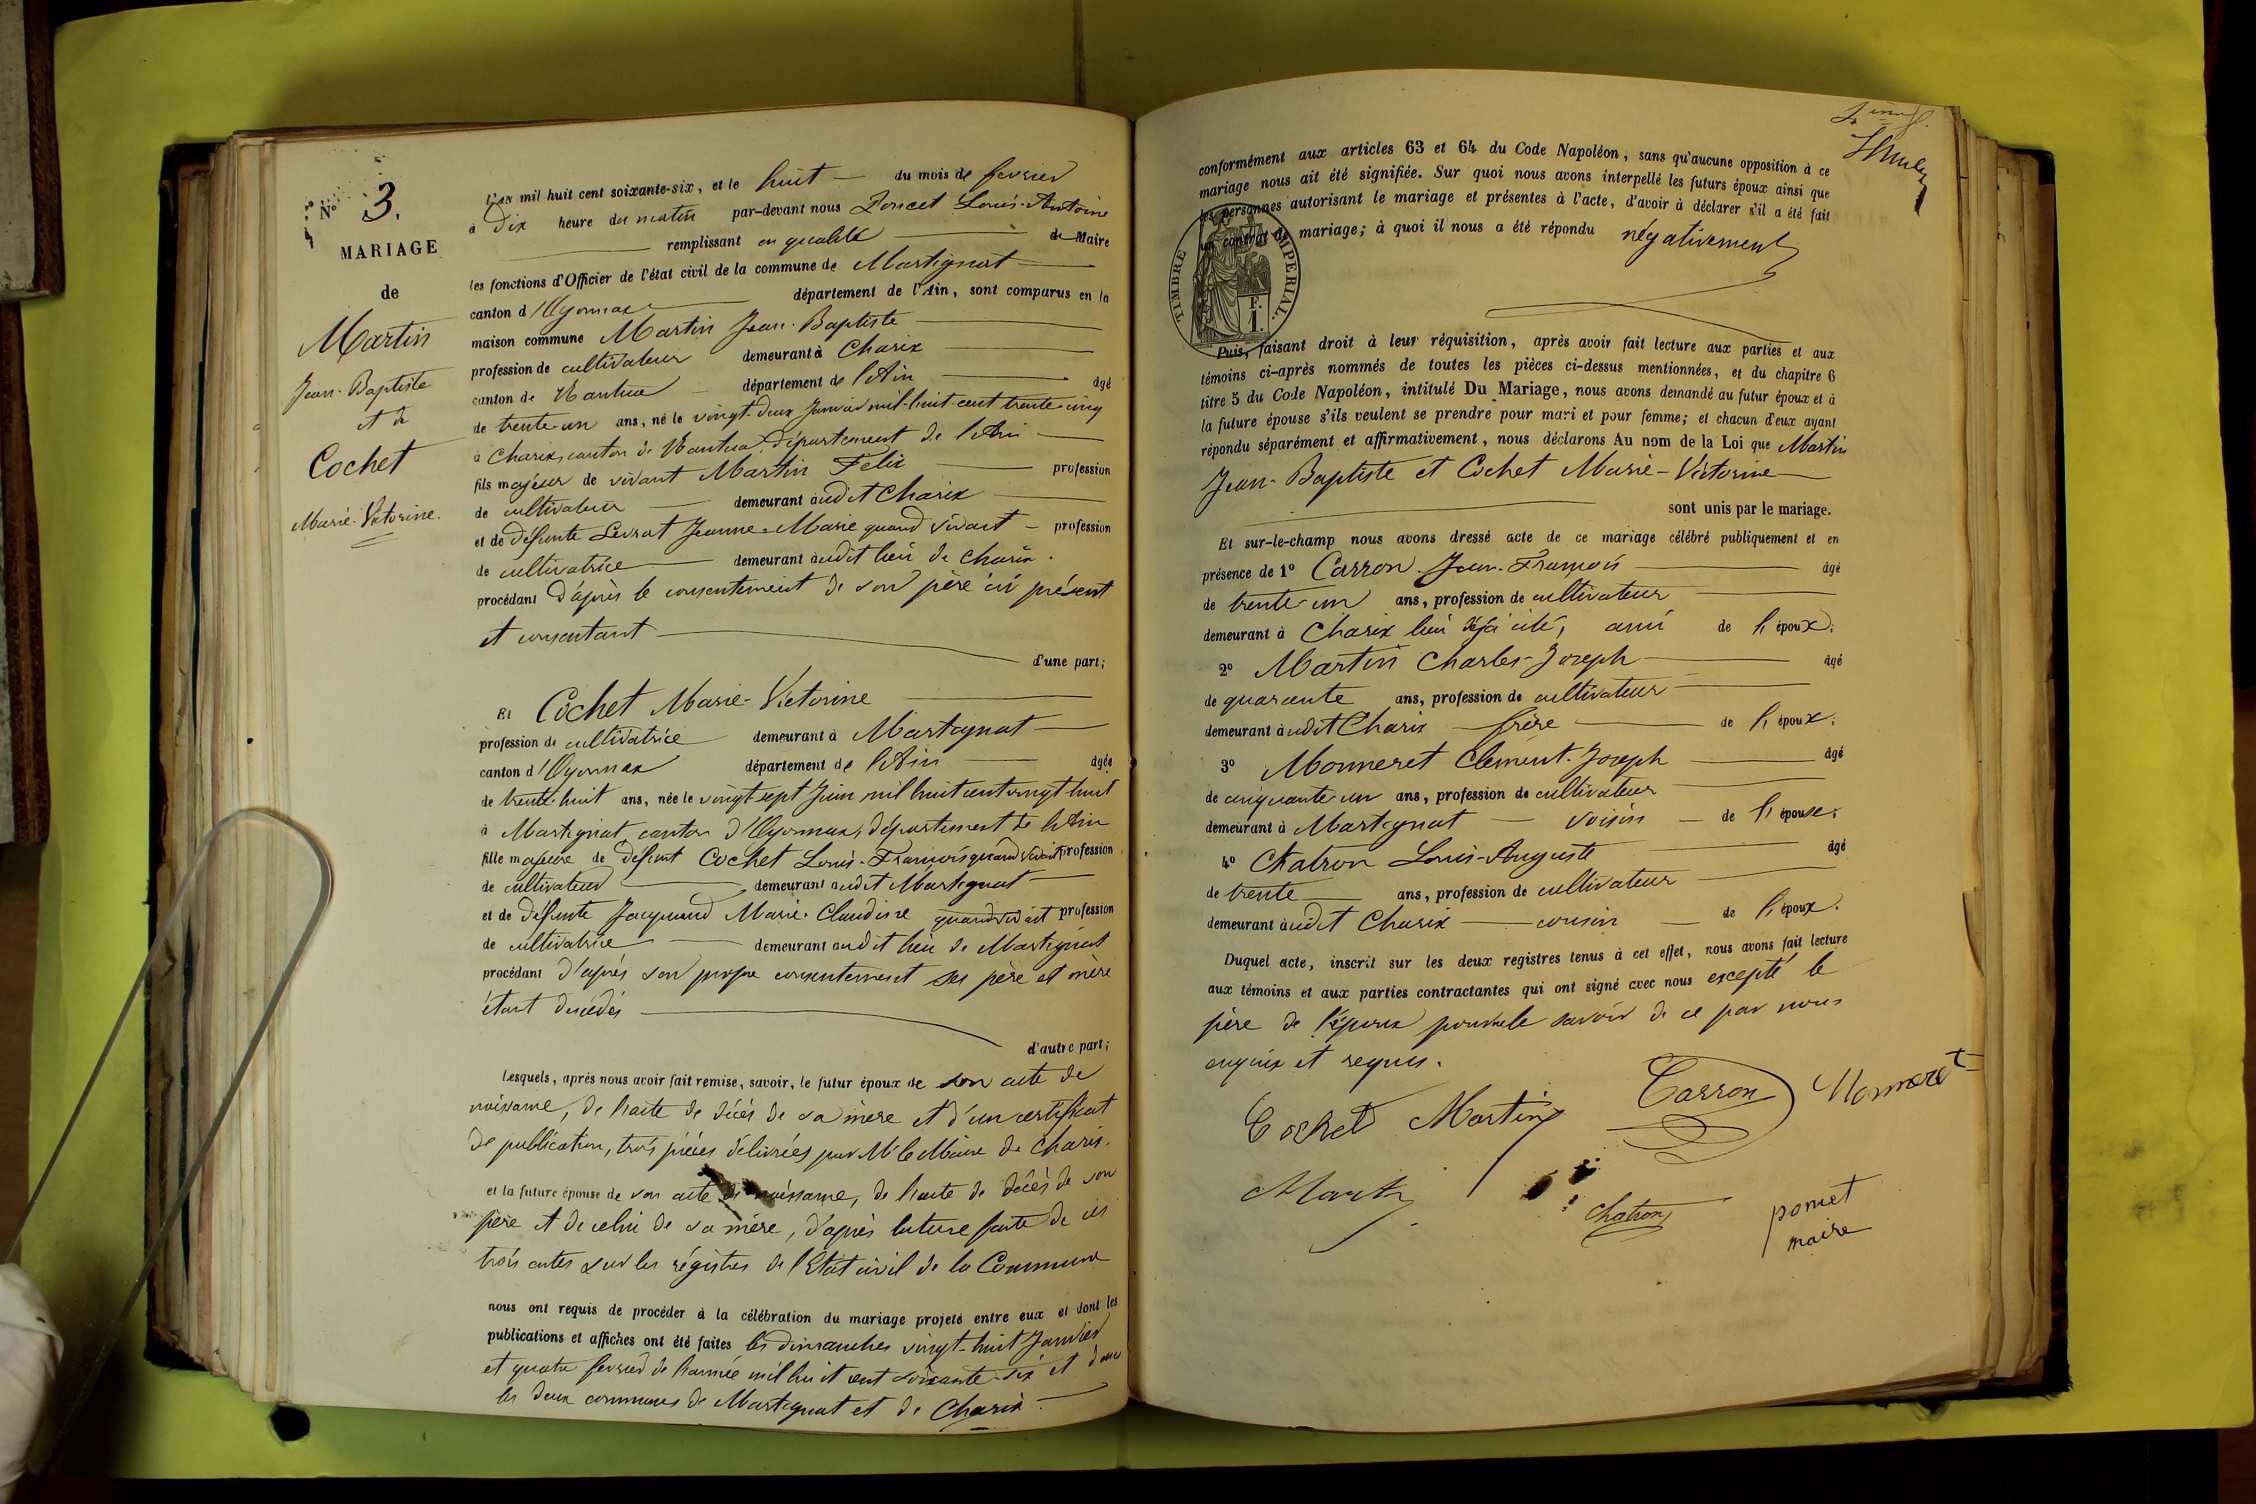 N° 3.
MARIAGE
de
Martin
Jean-Baptiste
et de
Cochet
Marie-Victorine.
L'an mil huit cent soixante-six, et le huit du mois de fevrier
à Dix heure du matin par-devant nous Poncet Louis-Antoine
remplissant en qualité de Maire
les fonctions d'Officier de l'état civil de la commune de Martignat
canton d'Oyonnax département de l'Ain, sont comparus en la
maison commune Martin Jean-Baptiste
profession de cultivateur demeurant à Charix
canton de Nantua département de l'Ain âgé
de trente-un ans, né le vingt-deux Janvier mil-huit-cent trente-cinq
à Charix, canton de Nantua, département de l'Ain
fils majeur de vivant Martin Felix profession
de cultivateur demeurant audit Charix
et de défunte Levrat Jeanne-Marie quand vivait profession
de cultivatrice demeurant audit lieu de Charix.
procédant d'après le consentement de son père ici présent
et consentant
d'une part;
Et Cochet Marie-Victorine
profession de cultivatrice demeurant à Martignat
canton d'Oyonnax département de l'Ain âgée
de trente-huit ans, née le vingt-sept Juin mil huit cent vingt huit
à Martignat, canton d'Oyonnax, département de l'Ain
fille majeure de défunt Cochet Louis-François quand vivait profession
de cultivateur demeurant audit Martignat
et de défunte Jacquand Marie-Claudine quand vivait profession
de cultivatrice demeurant audit lieu de Martignat
procédant d'après son propre consentement ses père et mère
étant décédés
d'autre part;
Lesquels, après nous avoir fait remise, savoir, le futur époux de son acte de
naissance, de l'acte de décès de sa mère et d'un certificat
de publication, trois pièces délivrées par Mr le Maire de Charix.
et la future épouse de son acte de naissance, de l'acte de décès de son
père et de celui de sa mère, d'après lecture faite de ces
trois actes sur les régistres de l'Etat civil de la Commune
nous ont requis de procéder à la célébration du mariage projeté entre eux et dont les
publications et affiches ont été faites les dimanches vingt-huit Janvier
et quatre fevrier de l'année mil huit cent soixante-six et dans
les deux communes de Martignat et de Charix.
conformément aux articles 63 et 64 du Code Napoléon, sans qu'aucune opposition à ce
mariage nous ait été signifiée. Sur quoi nous avons interpellé les futurs époux ainsi que
les personnes autorisant le mariage et présentes à l'acte, d'avoir à déclarer s'il a été fait
un contrat de mariage; à quoi il nous a été répondu négativement
TIMBRE IMPERIAL.
F.
1.
Puis, faisant droit à leur réquisition, après avoir fait lecture aux parties et aux
témoins ci-après nommés de toutes les pièces ci-dessus mentionnées, et du chapitre 6
titre 5 du Code Napoléon, intitulé Du Mariage, nous avons demandé au futur époux et à
la future épouse s'ils veulent se prendre pour mari et pour femme; et chacun d'eux ayant
répondu séparément et affirmativement, nous déclarons Au nom de la Loi que Martin
Jean-Baptiste et Cochet Marie-Victorine
sont unis par le mariage.
Et sur-le-champ nous avons dressé acte de ce mariage célébré publiquement et en
présence de 1° Carron Jean-François âgé
de trente-un ans, profession de cultivateur
demeurant à Charix lieu déjà cité, ami de l'époux.
2° Martin Charles-Joseph âgé
de quarante ans, profession de cultivateur
demeurant audit Charix frère de l'époux.
3° Monneret Clément-Joseph âgé
de cinquante un ans, profession de cultivateur
demeurant à Martignat voisin de l'épouse.
4° Chatron Louis-Auguste âgé
de trente ans, profession de cultivateur
demeurant audit Charix cousin de l'époux.
Duquel acte, inscrit sur les deux registres tenus à cet effet, nous avons fait lecture
aux témoins et aux parties contractantes qui ont signé avec nous excepté le
père de l'époux pour ne le savoir de ce par nous
enquis et requis.
Cochet Martin Carron Monneret
Martin Chatron poncet
maire